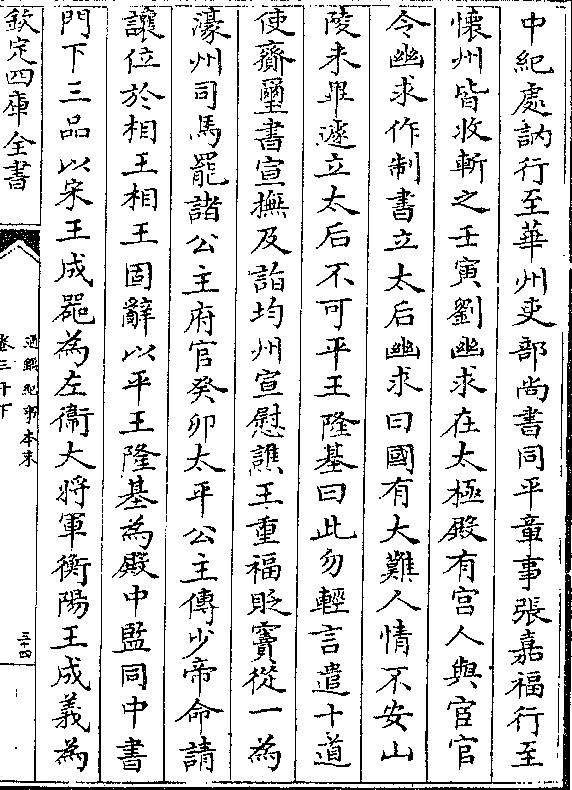 中紀處訥行至華州吏部尚書同平章事張嘉福行至
懷州皆收斬之壬寅劉幽求在太極殿有宫人與宦官
令幽求作制書立太后幽求曰國有大難人情不安山
陵未畢遽立太后不可平王隆基曰此勿輕言遣十道
使齎璽書宣撫及詣均州宣慰譙王重福貶竇從一為
濠州司馬罷諸公主府官癸卯太平公主傳少帝命請
讓位於相王相王固辭以平王隆基為殿中監同中書
門下三品以宋王成器為左衞大將軍衡陽王成義為
欽定四庫全書
通鑑紀事本末
卷三十下
三十四